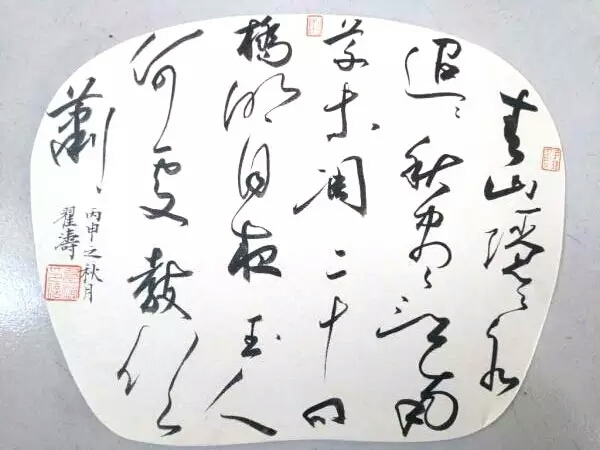 青山隱〻水
迢〻秋盡江南
草未凋二十四
橋明月夜玉人
何處教吹
簫
丙申之秋月
翟濤